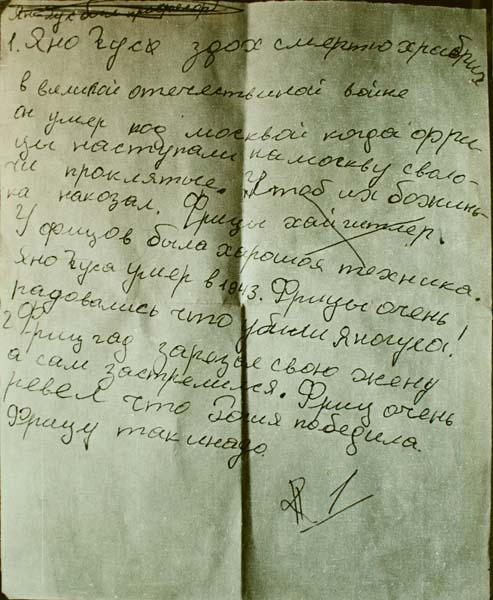 Яно Гус был профессор
1. Яно Гуса здох смертю храбрих
в великой отечествиной войне
он умер под москвой когда фри-
цы наступали на москву своло-
чи проклятые. Чтоб их божинь-
ка накозал. Фрицы хайгитлер.
У фицов была харошая техника.
Яно Гуса умер в 1943. Фрицы очень
радовались что убили Яногуса!
2 Фриц гад зарезал свою жену
а сам застрелился. Фриц очень
ревел что победила.
Фрицу так инадо.
1